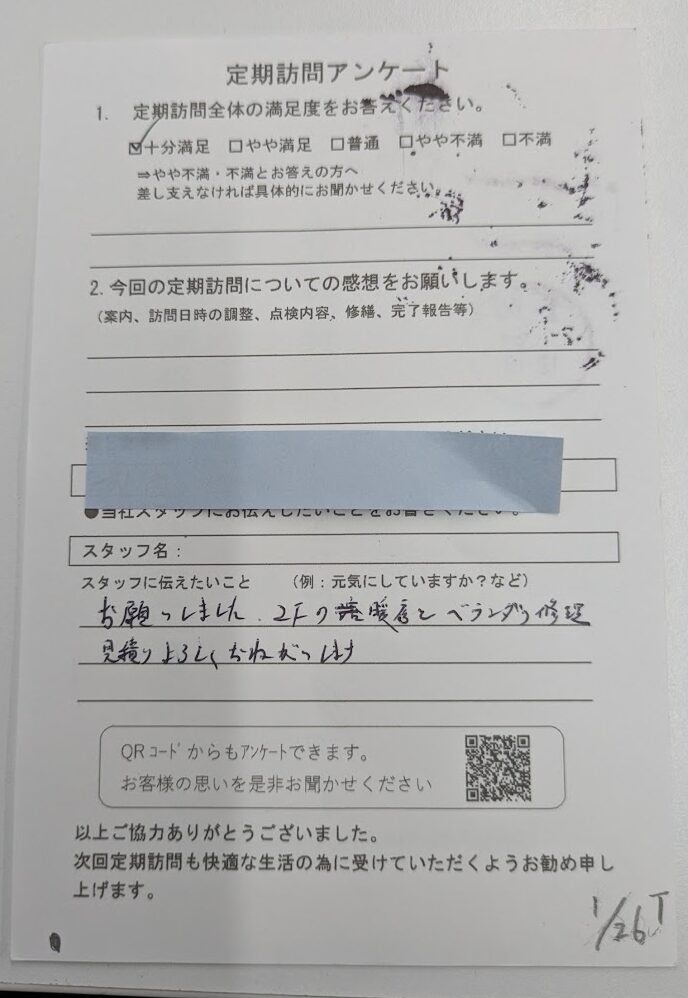 定期訪問アンケート
1. 定期訪問全体の満足度をお答えください。
☑十分満足 □やや満足 □普通 □やや不満 □不満
⇒やや不満・不満とお答えの方へ
差し支えなければ具体的にお聞かせください。
2. 今回の定期訪問についての感想をお願いします。
（案内、訪問日時の調整、点検内容、修繕、完了報告等）
●当社スタッフにお伝えしたいことをお書きください。
スタッフ名：
スタッフに伝えたいこと （例：元気にしていますか？など）
お願いしました、2Fの 暖房とベランダの修理
見積りよろしくおねがいします
QRコードからもアンケートできます。
お客様の思いを是非お聞かせください
以上ご協力ありがとうございました。
次回定期訪問も快適な生活の為に受けていただくようお勧め申し
上げます。
1/26 T